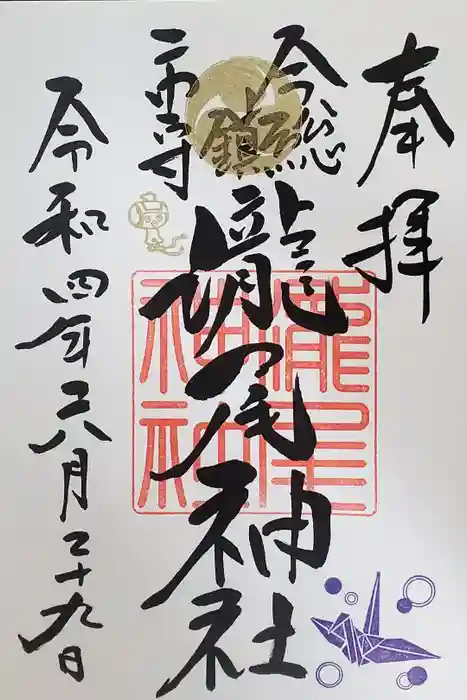 奉拝
今市
総鎮守
瀧の尾神社
令和四年六月二十九日
瀧尾
神社